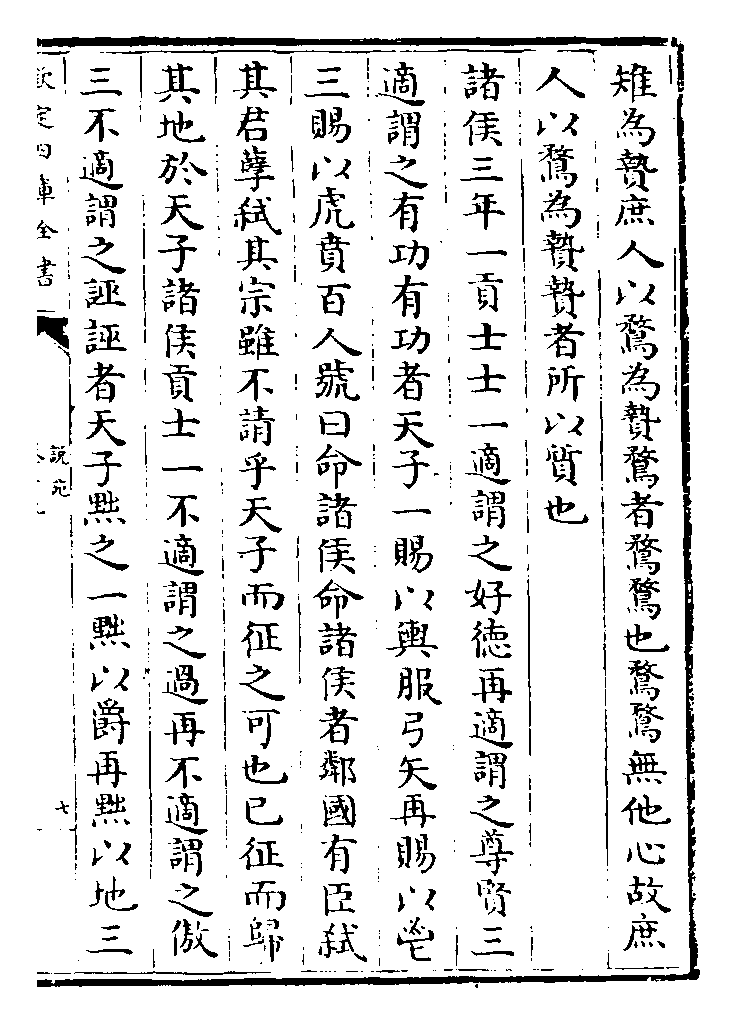 雉為贄庶人以鶩為贄鶩者鶩鶩也鶩鶩無他心故庶
人以鶩為贄贄者所以質也
諸侯三年一貢士士一適謂之好徳再適謂之尊賢三
適謂之有功有功者天子一賜以輿服弓矢再賜以鬯
三賜以虎賁百人號曰命諸侯命諸侯者鄰國有臣弑
其君孽弑其宗雖不請乎天子而征之可也已征而歸
其地於天子諸侯貢士一不適謂之過再不適謂之傲
三不適謂之誣誣者天子黜之一黜以爵再黜以地三
欽定四庫全書
說苑
七